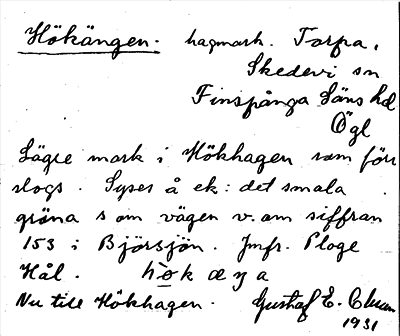 Hökängen. hagmark. Torpa,
Skedevi sn
Finspånga Läns hd
Ögl
Lägre mark i Hökhagen som förr
slogs. Syses å ek: det smala
gröna s om vägen v. om siffran
153 i Björsjön. Jmfr. Ploge
Hål. hòkæŋa
Nu till Hökhagen. Gustaf E.
1931